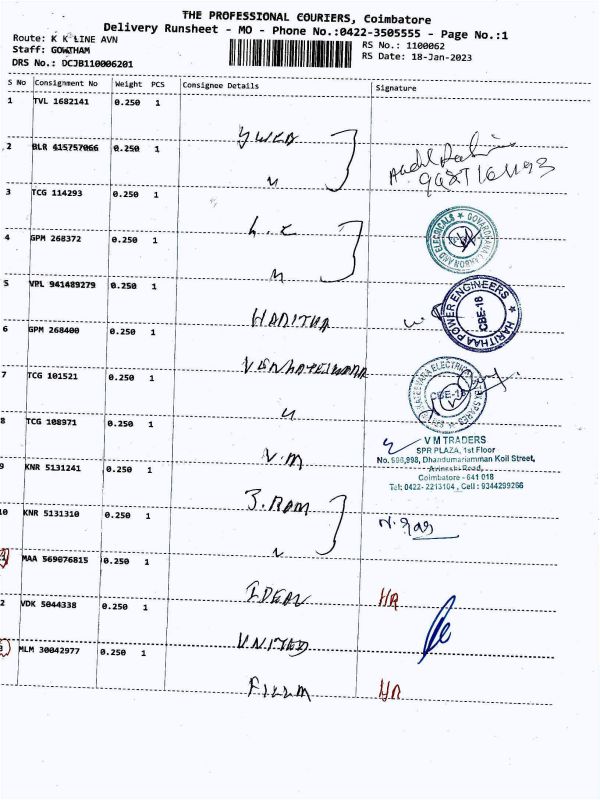 THE PROFESSIONAL COURIERS, Coimbatore
Delivery Runsheet - MO - Phone No.:0422-3505555 - Page No.:1
Route: K K LINE AVN
RS No.: 1100062
Staff: GOWTHAM
RS Date: 18-Jan-2023
DRS No.: DCJB110006201
S No Consignment No Weight PCS Consignee Details Signature
1 TVL 1682141 0.250 1
2 BLR 415757066 0.250 1
3 TCG 114293 0.250 1
4 GPM 268372 0.250 1
GOVARDHANA CARBON AND ELECRICALS
5 VPL 941489279 0.250 1
HARITHA
HARITHAA POWER ENGINEERS
CBE-18
6 GPM 268400 0.250 1
7 TCG 101521 0.250 1
CBE-18
8 TCG 108971 0.250 1
V.M
V M TRADERS
SPR PLAZA, 1st Floor
No. 996,998, Dhandumariamman Koil Street,
Avinashi Road,
Coimbatore - 641 018
Tel: 0422- 2213104, Cell : 9344299266
9 KNR 5131241 0.250 1
J. RAM
10 KNR 5131310 0.250 1
MAA 569076815 0.250 1
IDEAL
HR
2 VDK 5044338 0.250 1
UNITED
3 MLM 30042977 0.250 1
FILLM